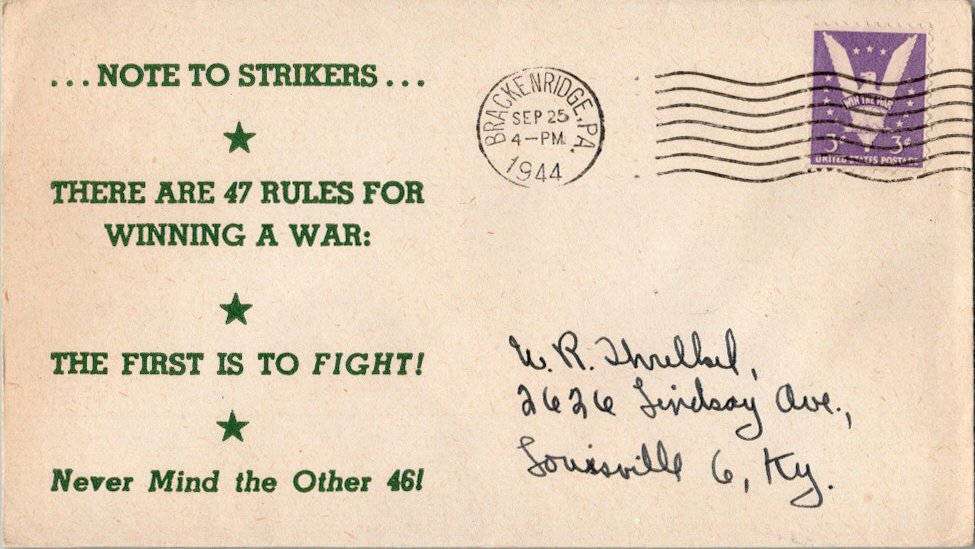 ...NOTE TO STRIKERS...
THERE ARE 47 RULES FOR
WINNING A WAR:
THE FIRST IS TO FIGHT!
Never Mind the Other 46!
BRACKENRIDGE, PA.
SEP 25
4-PM
1944
WIN THE WAR
3¢ 3¢
UNITED STATES POSTAGE
W. R. Threlkel,
2626 Lindsay Ave.,
Louisville 6, Ky.